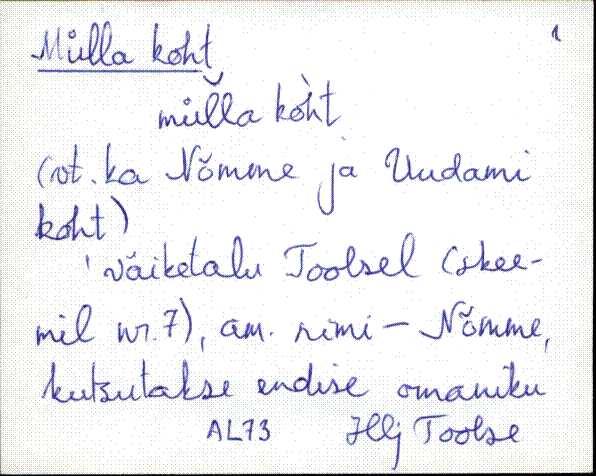 Mülla koht 1
mül̆la kòht
(vt. ka Nõmme ja Uudami
koht)
' väiketalu Toolsel (skee-
mil nr. 7), am. nimi – Nõmme,
kutsutakse endise omaniku
AL73 Hlj Toolse